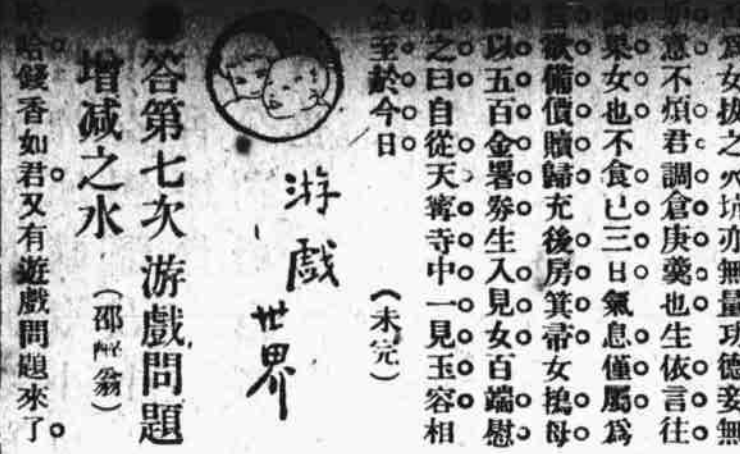 為女拔之火坑亦無量功德妾無
意不煩君調倉庚羹也生依言往
果女也不食已三日氣息僅屬為
欲備價贖歸充後房箕帚女搗母
以五百金署券生入見女百端慰
之曰自從天寗寺中一見玉容相
至於今日 （未完）
游戲世界
答第七次游戲問題
增减之水 （邵翁）
哈哈錢香如君又有遊戲問題來了。